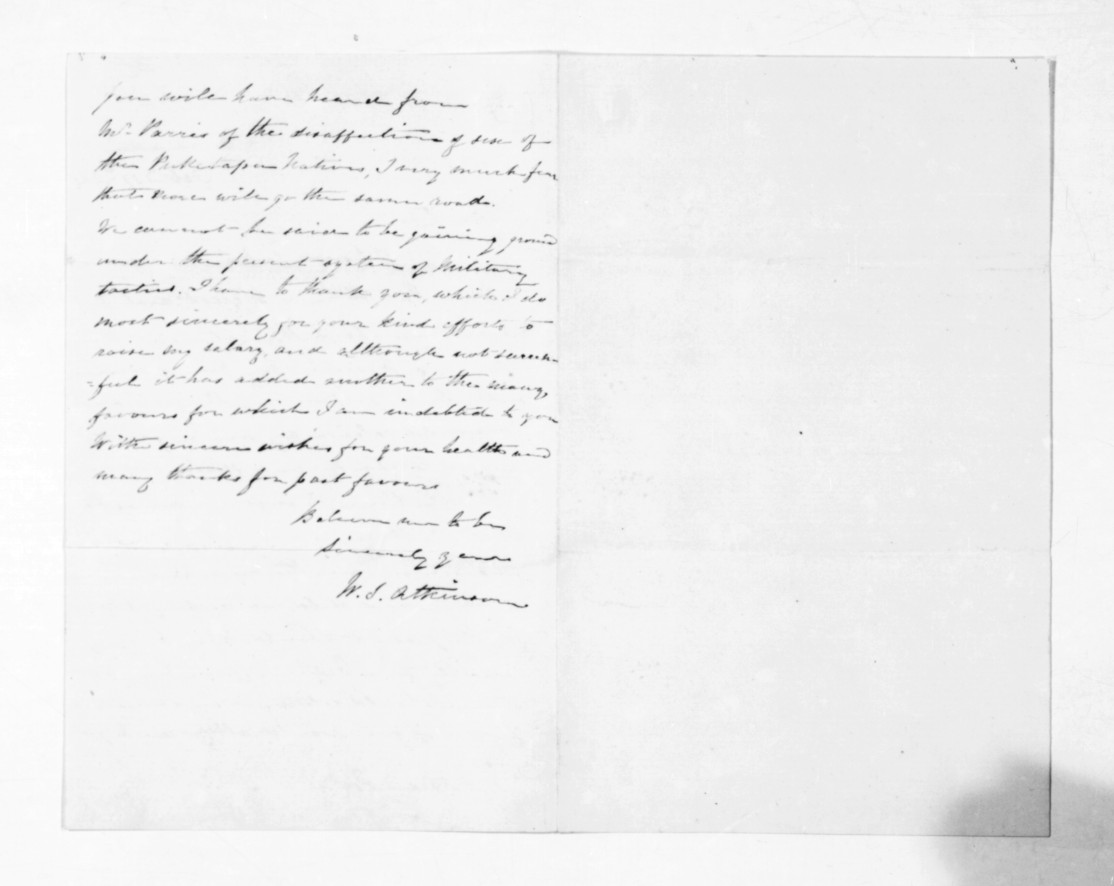 you will have heard from
Mr. Parris of the disaffection of six of
the Puketapu Natives, I very much fear
that more will go the same road.
We cannot be said to be gaining ground
under the present system of Military
tactics. I have to thank you, which I do
most sincerely for your kind efforts to
raise my salary, and although not success-
=ful it has added another to the many
favours for which I am indebted to you
With sincere wishes for your health and
many thanks for past favours
Believe me to be
Sincerely yours
W. S. Atkinson